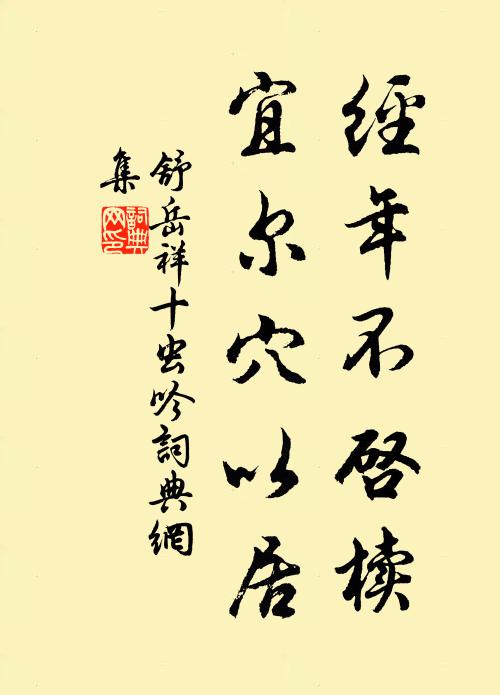 經年不啓櫝
宜尔穴以居
舒岳祥十虫吟詞典網
集
詞典网印